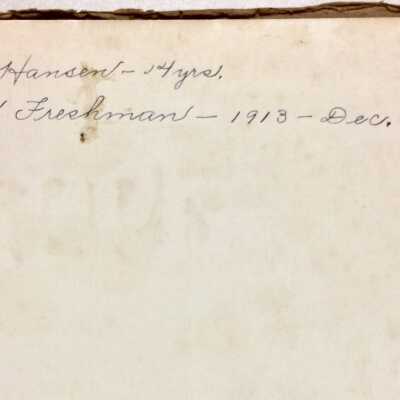 Hansen - 14 yrs.
Freshman - 1913 - Dec.